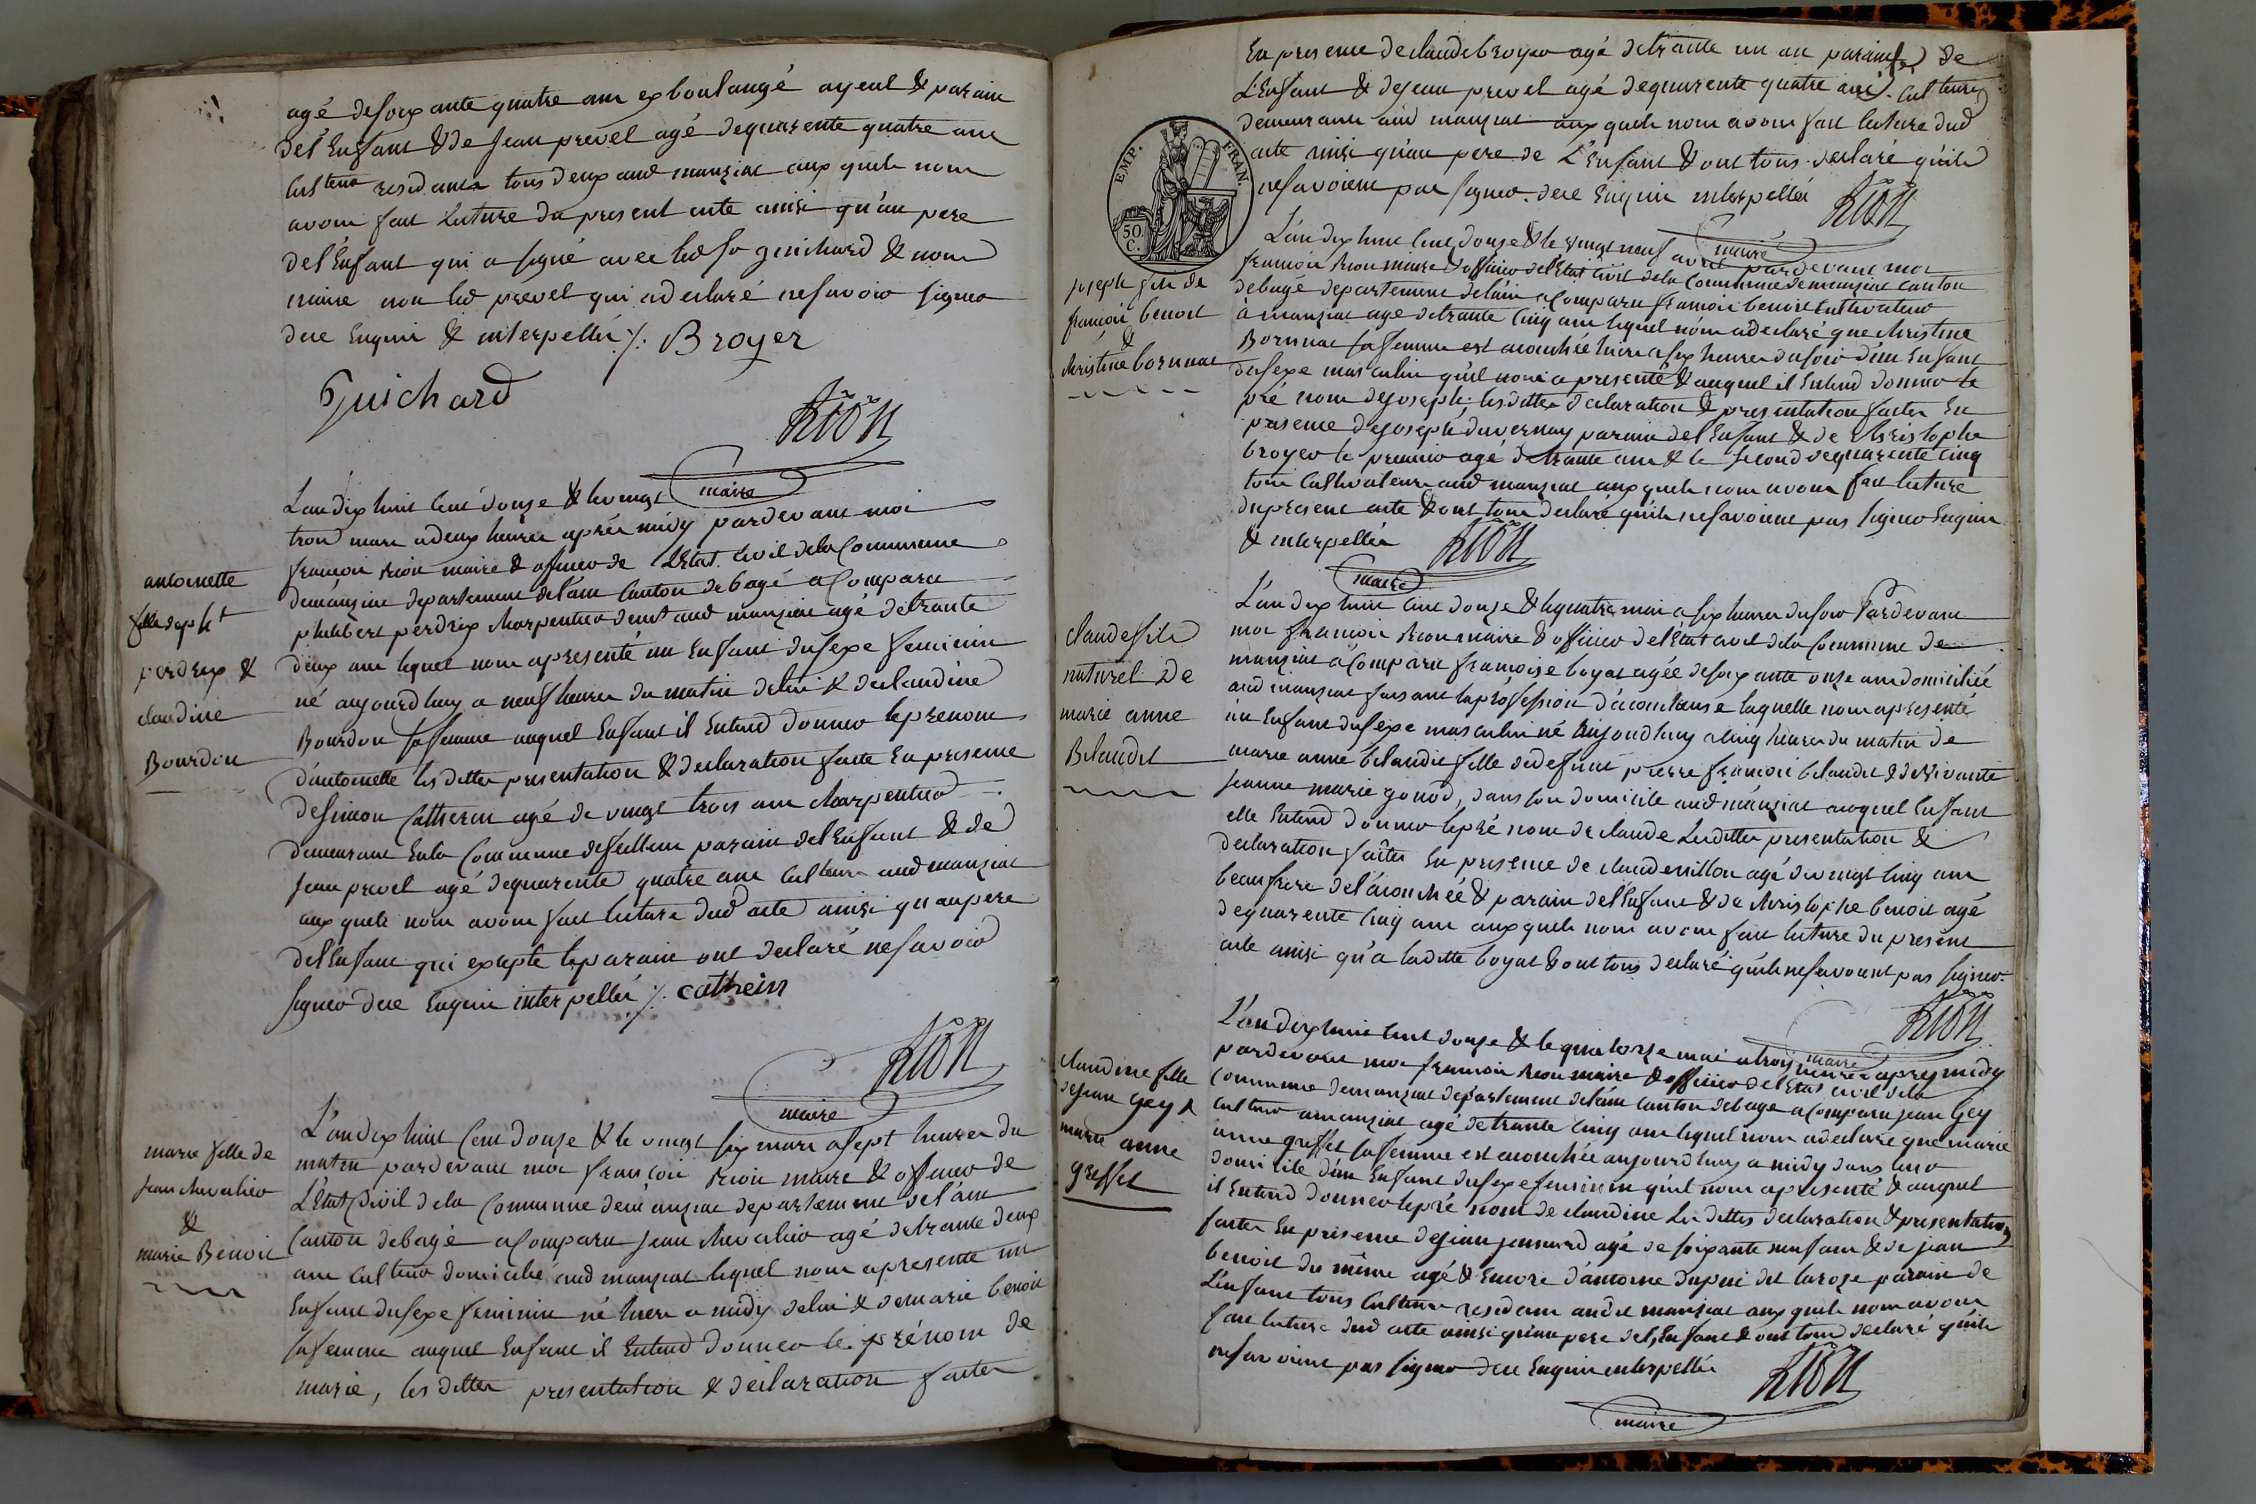 agé de soixante quatre ans ex boulangé ayeul & parain
de l'Enfant & de Jean prevel agé de quarente quatre ans
cult.eurs residants tous deux aud manziat aux quels nous
avons fait lecture du present acte ainsi qu'au pere
de l'Enfant qui a signé avec led guichard & nous
maire non led prevel qui a declaré ne savoir signer
de ce Enquis & interpellés ./. Broyer
Guichard
Rion
maire
antoinette
fille de ph.t
perdrix &
claudine
Bourdon
L'an dix huit cent douze & le vingt
trois mars a deux heures après midy pardevant moi
françois Rion maire & officier de L'Etat civil de la Commune
de manziat departement de l'ain Canton de bagé a Comparu
philibert perdrix charpentier demt aud manziat agé de trante
deux ans lequel nous a presenté un Enfant du sexe feminin
né aujourd huy a neuf heures du matin de lui & de claudine
Bourdon sa femme auquel Enfant il Entend donner le prenom
d'antoinette les dittes presentation & declaration faite En presence
de simon Catherin agé de vingt trois ans charpentier
demeurant En la Commune de feillens parain de l'Enfant & de
Jean prevel agé de quarente quatre ans cult.eur aud manziat
aux quels nous avons fait lecture dud acte ainsi qu au pere
de l'Enfant qui excepté le parain ont declaré ne savoir
signer de ce Enquis interpellés ./. catherin
Rion
maire
marie fille de
jean chevalier
&
marie Benoit
L'an dix huit Cent douze & le vingt six mars a sept heures du
matin pardevant moi françois Rion maire & officier de
L'Etat Civil de la Commune de manziat departement de l'ain
Canton de bagé a Comparu Jean chevalier agé de trante deux
ans cult.eur domicilié aud manziat lequel nous a presenté un
Enfant du sexe feminin né hier a midy de lui & de marie benoit
sa femme auquel Enfant il Entend donner le prénom de
marie, les dittes presentation & declaration faites
En presence de claude broyer agé de trante un an parain de
L'Enfant & de jean prevel agé de quarente quatre ans cult.eurs
demeurants aud manziat aux quels nous avons fait lecture dud
acte ainsi qu'au pere de L'Enfant & ont tous declaré qu'ils
ne savoient pas signer de ce Enquis interpellés
Rion
maire
EMP. FRAN.
50. C.
joseph fils de
françois benoit
&
christine bornnat
L'an dix huit cent douze & le vingt neuf avril pardevant moi
françois Rion maire & officier de l'Etat civil de la Commune de manziat canton
de bagé departement de l'ain a Comparu françois benoit cultivateur
à manziat agé de trante cinq ans lequel nous a declaré que christine
Bornnat sa femme est acouchée hier a six heures du soir d'un Enfant
du sexe masculin qu'il nous a presenté & auquel il Entend donner le
pré nom de joseph. les dittes declaration & presentation faites En
presence de joseph duvernay parain de l'Enfant & de christophe
broyer le premier agé de trante ans & le second de quarente cinq
tous cultivateurs aud manziat aux quels nous avons fait lecture
du present acte & ont tous declaré qu'ils ne savoient pas signer Enquis
& interpellés
Rion
maire
claude fils
naturel de
marie anne
Belaudit
L'an dix huit cent douze & le quatre mai a six heures du soir Pardevant
moi françois Rion maire & officier de l'Etat civil de la Commune de
manziat a Comparu françoise boyat agée de soixante onze ans domiciliée
aud manziat faisant la profession d'acoucheuse laquelle nous a presenté
un Enfant du sexe masculin né aujourdhuy a cinq heures du matin de
marie anne belaudit fille de defunt pierre françois belaudit & de vivante
jeanne marie gonod, dans son domicile aud manziat auquel Enfant
elle Entend donner le pré nom de claude les dittes presentation &
declaration faites En presence de claude millon agé de vingt cinq ans
beau frere de l'acouchée & parain de l'Enfant & de christophe benoit agé
de quarente cinq ans aux quels nous avons fait lecture du present
acte ainsi qu'a laditte boyat & ont tous declaré qu'ils ne savoient pas signer
Rion
maire
claudine fille
de jean Gey &
marie anne
greffet
L'an dix huit cent douze & le quatorze mai a trois heures apres midy
pardevant moi françois Rion maire & officier de l'Etat civil de la
commune de manziat departement de l'ain canton de bagé a comparu jean Gey
cult.eur a manziat agé de trante cinq ans lequel nous a declaré que marie
anne greffet sa femme est acouchée aujourd huy a midy dans leur
domicile d'un Enfant du sexe feminin qu'il nous a presenté & auquel
il Entend donner le pré nom de claudine les dittes declaration & presentation
faites En presence de jean jennard agé de soixante neuf ans & de jean
benoit du même agé & Encore d'antoine dupui dit larose parain de
L'enfant tous cult.eurs residans audit manziat aux quels nous avons
fait lecture dud acte ainsi qu'au pere de l'Enfant & ont tous declaré qu'ils
ne savoient pas signer de ce Enquis interpellés
Rion
maire